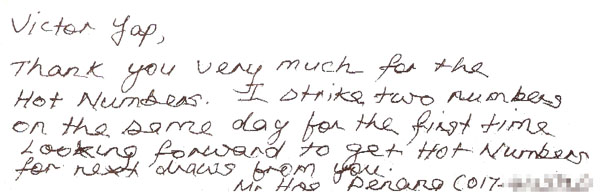 Victor Yap,
Thank you very much for the
Hot Numbers. I strike two numbers
on the same day for the first time
Looking forward to get Hot Numbers
for next draws from you.
Mr Penang (017-